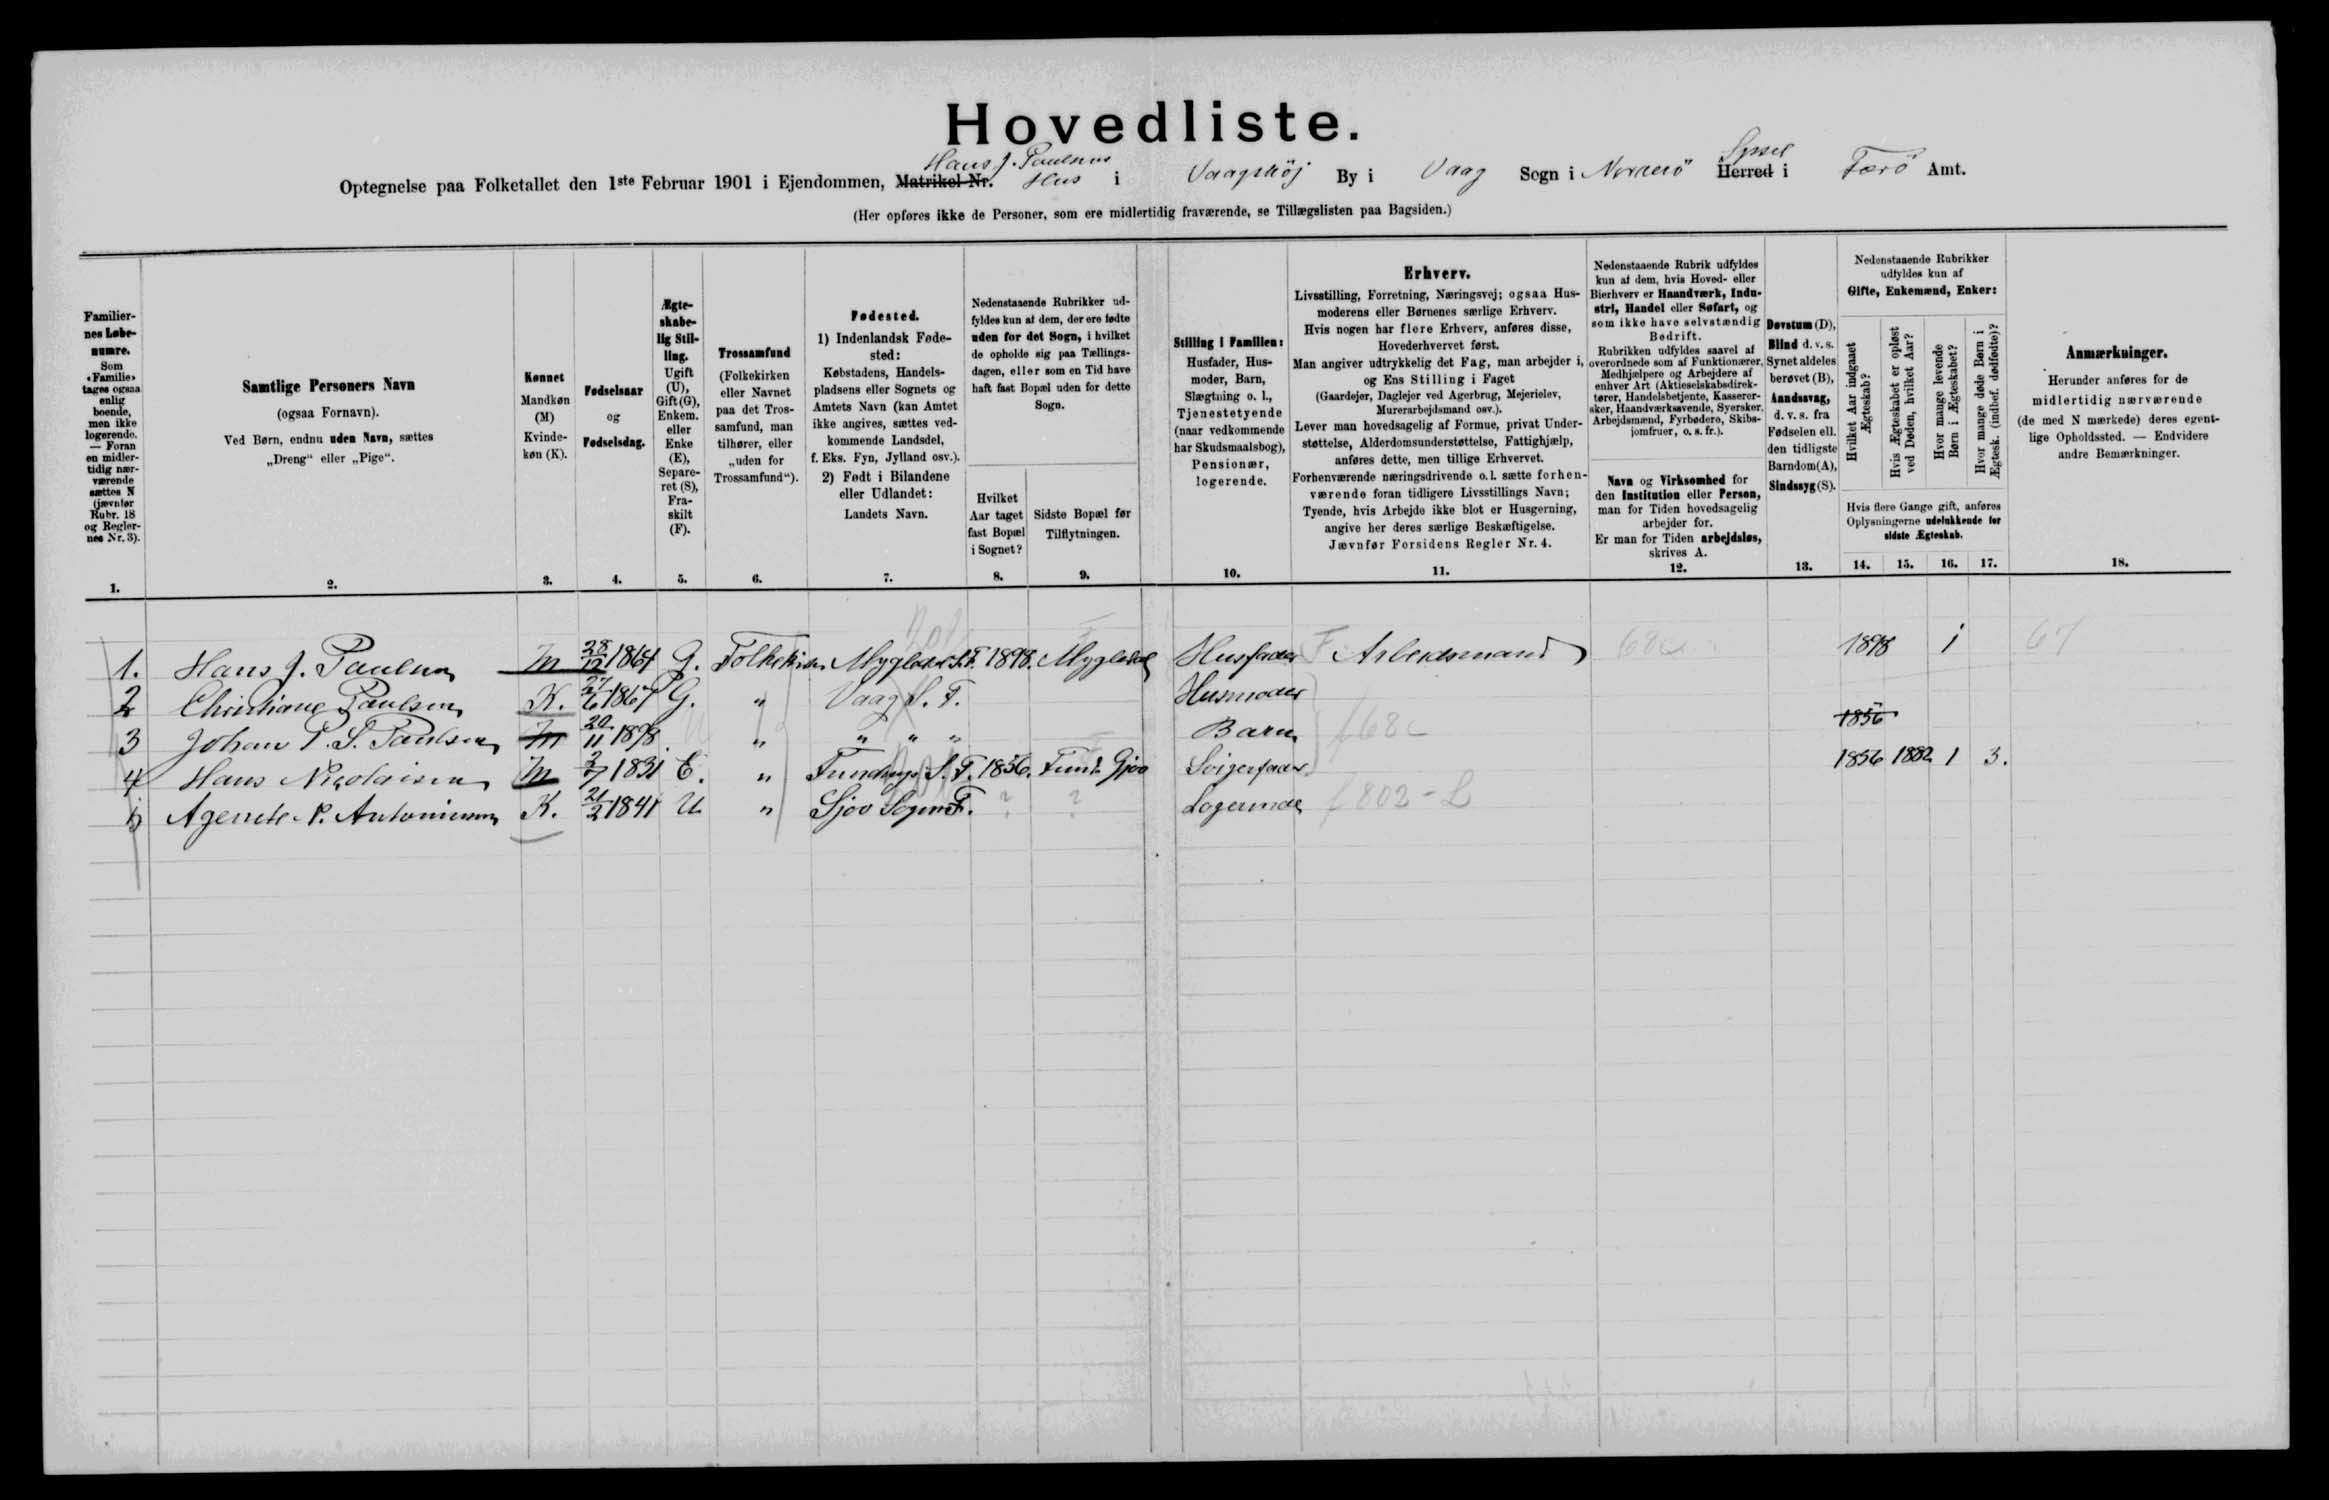 Hovedliste.
Optegnelse paa Folketallet den 1ste Februar 1901 i Ejendommen, Matrikel Nr. Hans J. Paulsens Hus i Vaagshöj By i Vaag Sogn i Norderö Herred Syssel i Færö Amt.
(Her opføres ikke de Personer, som ere midlertidig fraværende, se Tillægslisten paa Bagsiden.)
Familiernes Løbenumre.
Som «Familie» tages ogsaa enlig boende, men ikke logerende. — Foran en midlertidig nærværende sættes N (jævnfør Rubr. 18 og Reglernes Nr. 3).
1.
Samtlige Personers Navn
(ogsaa Fornavn).
Ved Børn, endnu uden Navn, sættes „Dreng“ eller „Pige“.
2.
Kønnet
Mandkøn (M)
Kvindekøn (K).
3.
Fødselsaar og Fødselsdag.
4.
Ægteskabelig Stilling.
Ugift (U), Gift (G), Enkem. eller Enke (E), Separeret (S), Fraskilt (F).
5.
Trossamfund
(Folkekirken eller Navnet paa det Trossamfund, man tilhører, eller „uden for Trossamfund“).
6.
Fødested.
1) Indenlandsk Fødested:
Købstadens, Handelspladsens eller Sognets og Amtets Navn (kan Amtet ikke angives, sættes vedkommende Landsdel, f. Eks. Fyn, Jylland osv.).
2) Født i Bilandene eller Udlandet:
Landets Navn.
7.
Nedenstaaende Rubrikker udfyldes kun af dem, der ere fødte uden for det Sogn, i hvilket de opholde sig paa Tællingsdagen, eller som en Tid have haft fast Bopæl uden for dette Sogn.
Hvilket Aar taget fast Bopæl i Sognet?
8.
Sidste Bopæl før Tilflytningen.
9.
Stilling i Familien:
Husfader, Husmoder, Barn, Slægtning o. l., Tjenestetyende (naar vedkommende har Skudsmaalsbog), Pensionær, logerende.
10.
Erhverv.
Livsstilling, Forretning, Næringsvej; ogsaa Husmoderens eller Børnenes særlige Erhverv.
Hvis nogen har flere Erhverv, anføres disse, Hovederhvervet først.
Man angiver udtrykkelig det Fag, man arbejder i, og Ens Stilling i Faget
(Gaardejer, Daglejer ved Agerbrug, Mejerielev, Murerarbejdsmand osv.).
Lever man hovedsagelig af Formue, privat Understøttelse, Alderdomsunderstøttelse, Fattighjælp, anføres dette, men tillige Erhvervet.
Forhenværende næringsdrivende o. l. sætte forhenværende foran tidligere Livsstillings Navn;
Tyende, hvis Arbejde ikke blot er Husgerning, angive her deres særlige Beskæftigelse.
Jævnfør Forsidens Regler Nr. 4.
11.
Nedenstaaende Rubrik udfyldes kun af dem, hvis Hoved- eller Bierhverv er Haandværk, Industri, Handel eller Søfart, og som ikke have selvstændig Bedrift.
Rubrikken udfyldes saavel af overordnede som af Funktionærer, Medhjælpere og Arbejdere af enhver Art (Aktieselskabsdirektører, Handelsbetjente, Kasserersker, Haandværkssvende, Syersker, Arbejdsmænd, Fyrbødere, Skibsjomfruer, o. s. fr.).
Navn og Virksomhed for den Institution eller Person, man for Tiden hovedsagelig arbejder for.
Er man for Tiden arbejdsløs, skrives A.
12.
Døvstum (D), Blind d. v. s. Synet aldeles berøvet (B), Aandssvag, d. v. s. fra Fødselen ell. den tidligste Barndom (A), Sindssyg (S).
13.
Nedenstaaende Rubrikker udfyldes kun af Gifte, Enkemænd, Enker:
Hvilket Aar indgaaet Ægteskab?
Hvis Ægteskabet er opløst ved Døden, hvilket Aar?
Hvor mange levende Børn i Ægteskabet?
Hvor mange døde Børn i Ægtesk. (indbef. dødfødte)?
Hvis flere Gange gift, anføres Oplysningerne udelukkende for sidste Ægteskab.
14. 15. 16. 17.
Anmærkninger.
Herunder anføres for de midlertidig nærværende (de med N mærkede) deres egentlige Opholdssted. — Endvidere andre Bemærkninger.
18.
1. Hans J. Paulsen M 28/12 1864 G. Folkekirken Mygledal S. F. 1898. Mygledal Husfader F. Arbeidsmand 68c 1898 1 67
2 Christiane Paulsen K. 27/6 1867 G. " Vaag S. F. Husmoder
3 Johan P. S. Paulsen M 20/11 1898. U " " " " Barn f 68c 1856
4 Hans Nicolaisen M 2/7 1831 E. " Fundings S. F. 1856. Fund. Gjov Svigerfader 1856 1882 1 3.
5 Agenete P. Antonisen K. 21/2 1841 U " Sjov Sogn F. ? ? Logerinde f 802 - L